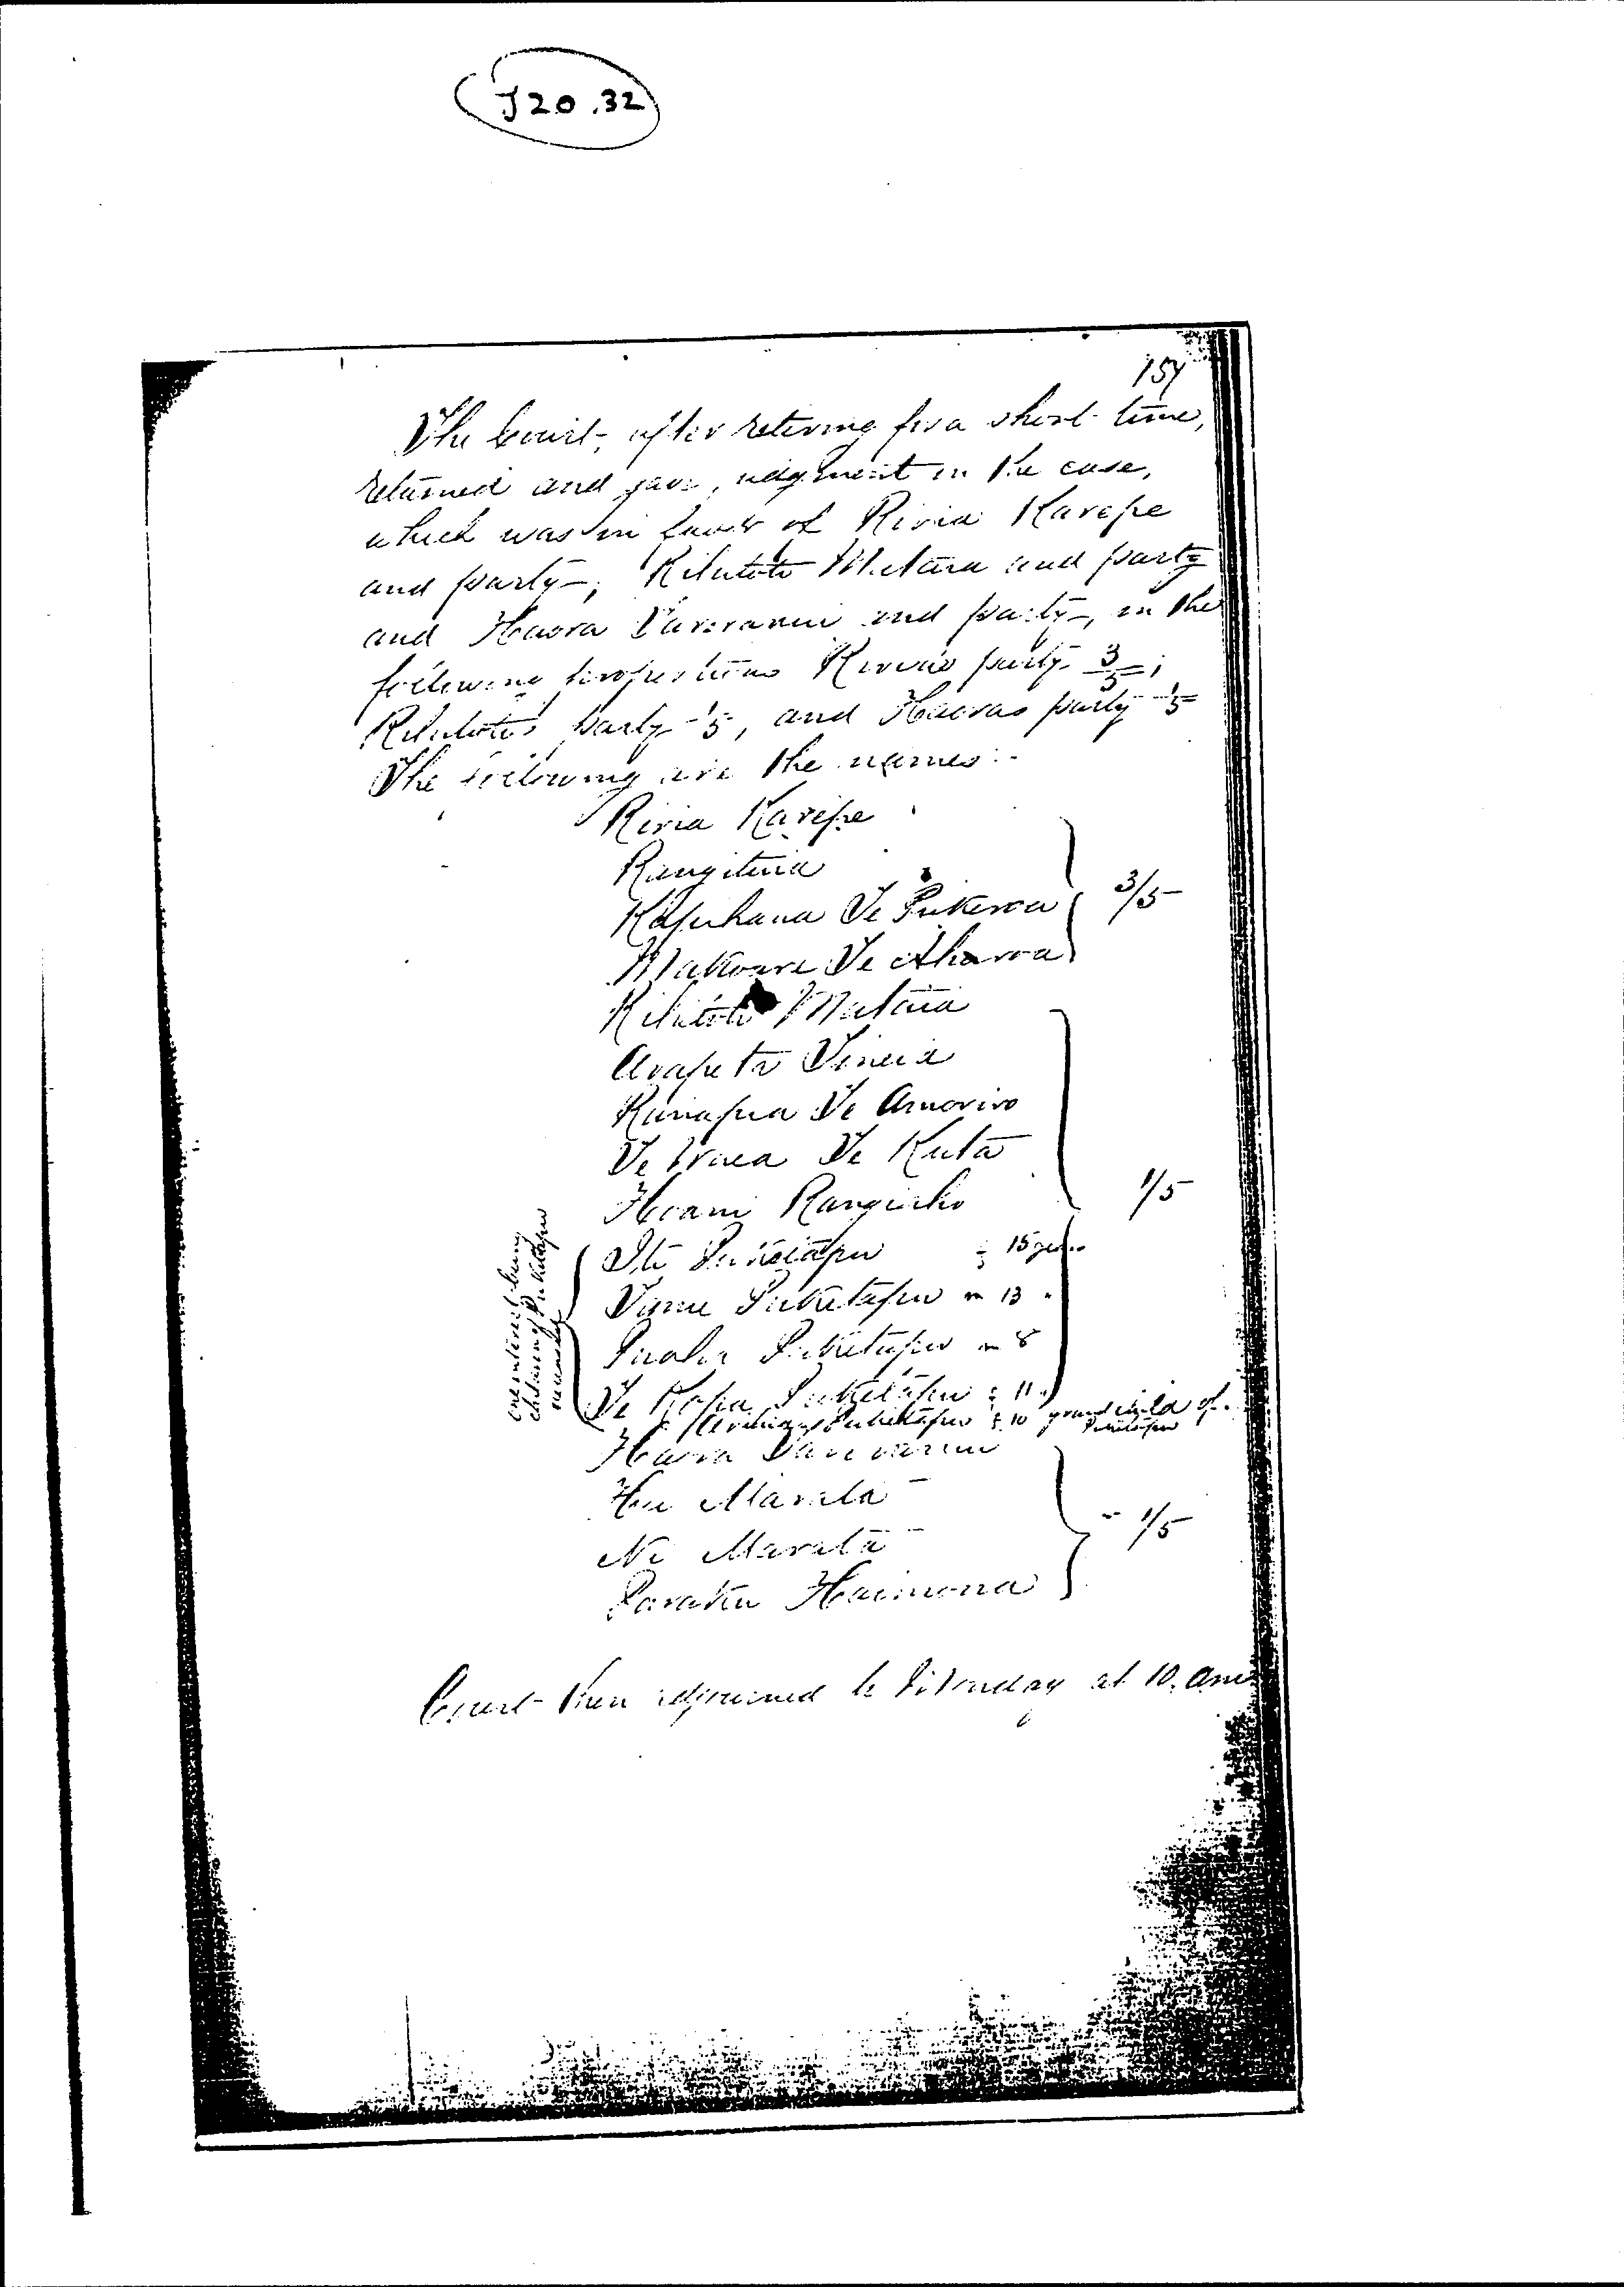 J20.32
157
The Court, after retiring for a short time,
returned and gave judgment in the case,
which was in favor of Riria Karepe
and party; Rihitoto Mataia and party
and Haora Tareranui and party, in the
following proportions Riria's party 3/5;
Rihitoto's party 1/5, and Haoras party 1/5
The following are the names:-
Riria Karepe
Rangituia
Kapuhana Te Pukeroa 3/5
Makoare Te Aharoa
Rihitoto Mataia
Arapeta Tineia
Runapua Te Amoriro
Te Te Kuta
Hoani 1/5
Puketapu 15 years
Puketapu 13
Puketapu 8
Te Kopa Puketapu 11
one interest being
children of Puketapu
Puketapu 10 grandchild of
Puketapu
Haora Tareranui
Marata
Ni Marata 1/5
Haimona
Court then adjourned to at 10. am